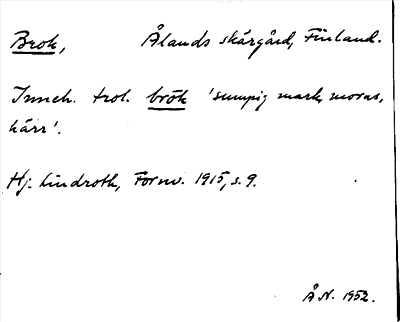 Brok, Ålands skärgård, Finland.
Inneh. trol. brök 'sumpig mark, moras,
kärr'.
Hj. Lindroth, Fornv. 1915, s. 9.
Å N. 1952.